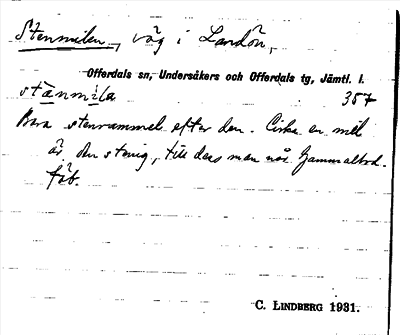 Stenmilen, väg i Landön,
Offerdals sn, Undersåkers och Offerdals tg, Jämtl. l.
stänmila 357
Bara stenrammel efter den. Cirka en mil
är den stenig, till dess man når Gammalbod.
fäb.
C. LINDBERG 1931.